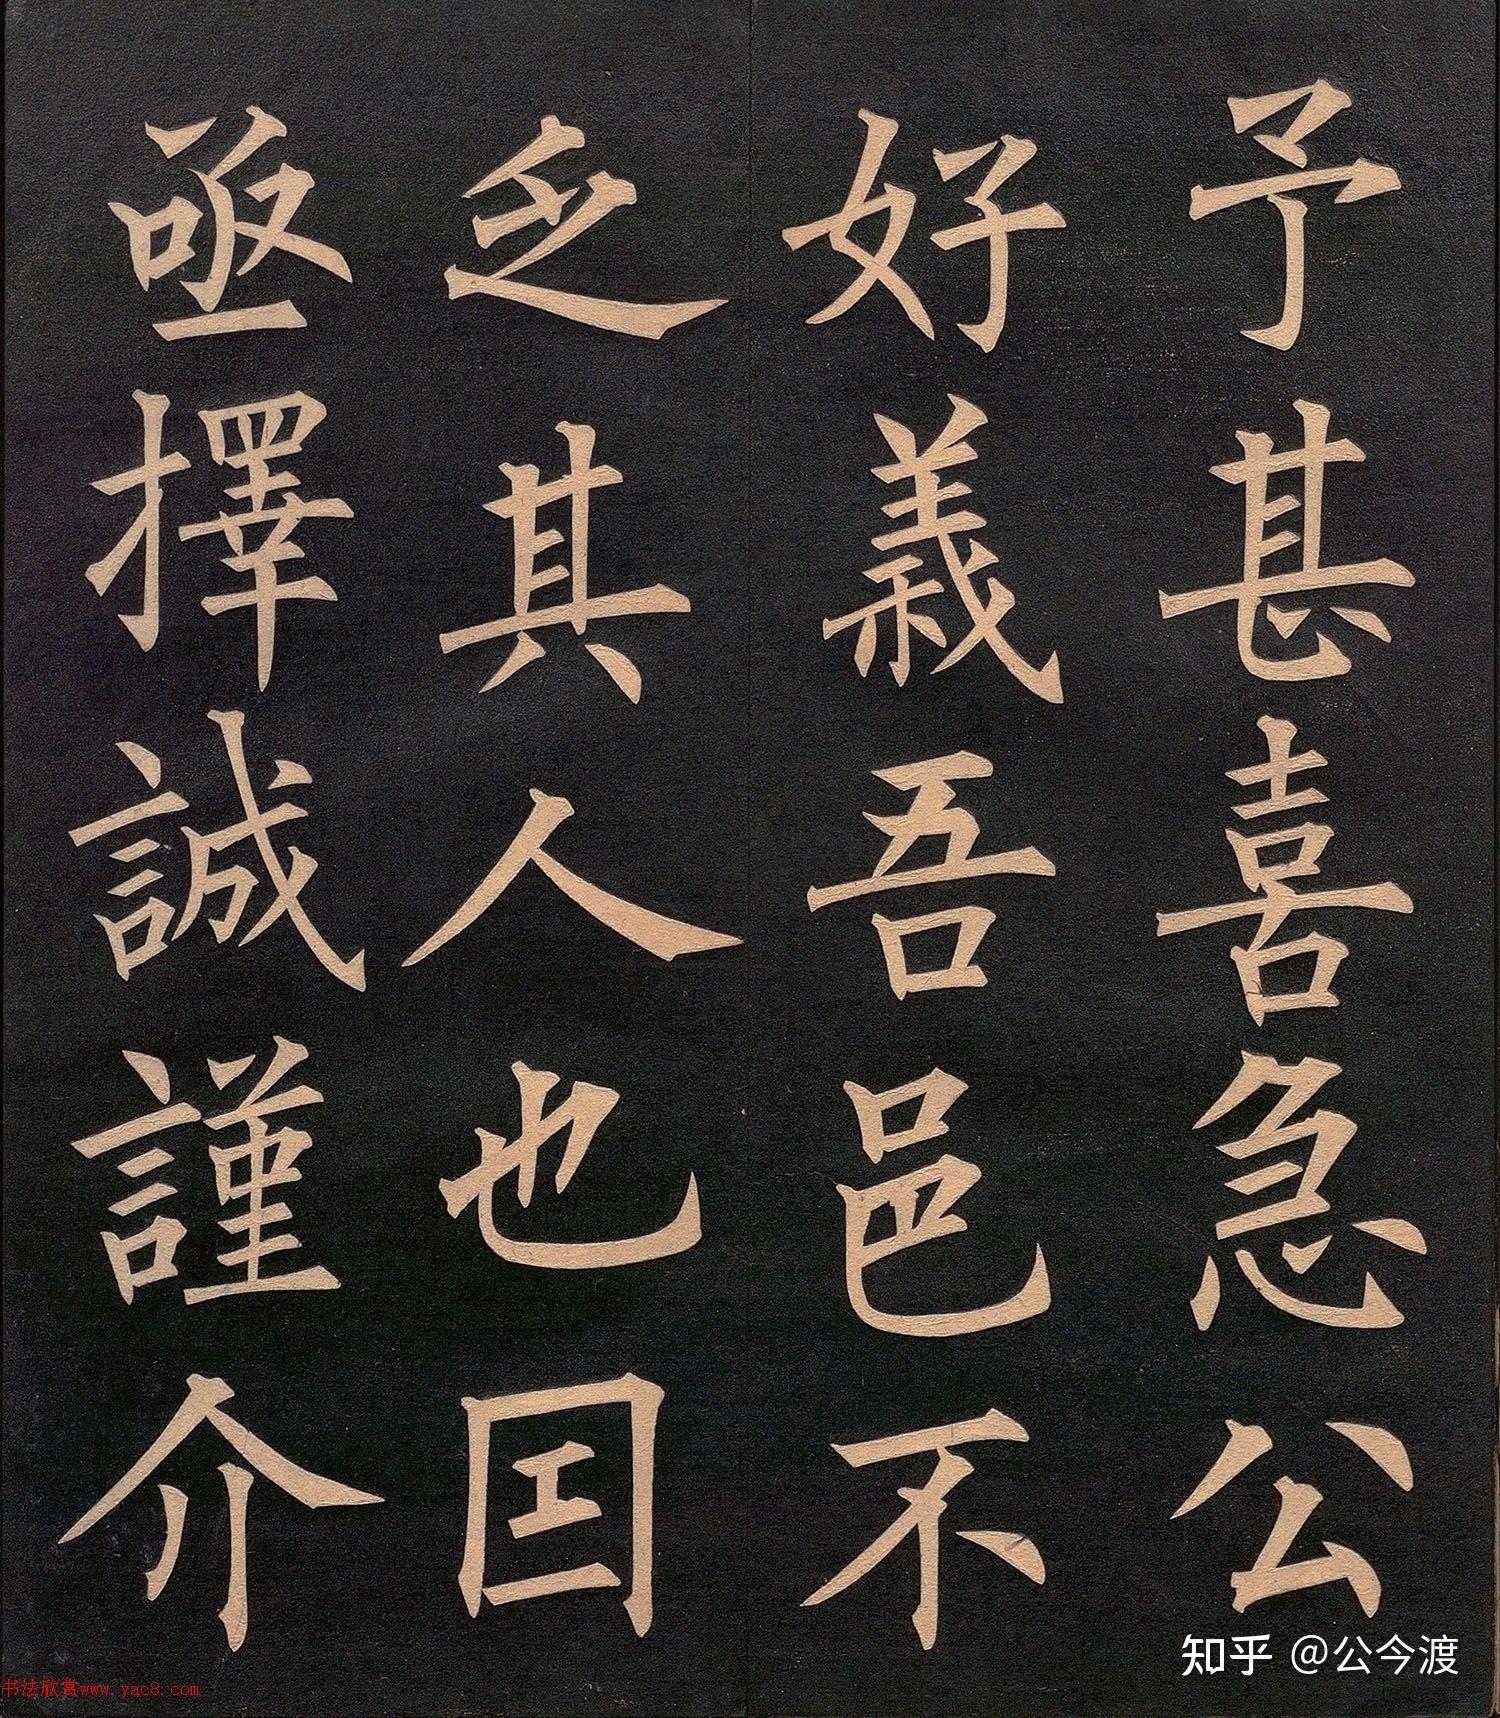 予甚喜急公
好義吾邑不
乏其人也囯
亟擇誠謹介
知乎 @公今渡
书法欣赏www.yac8.com